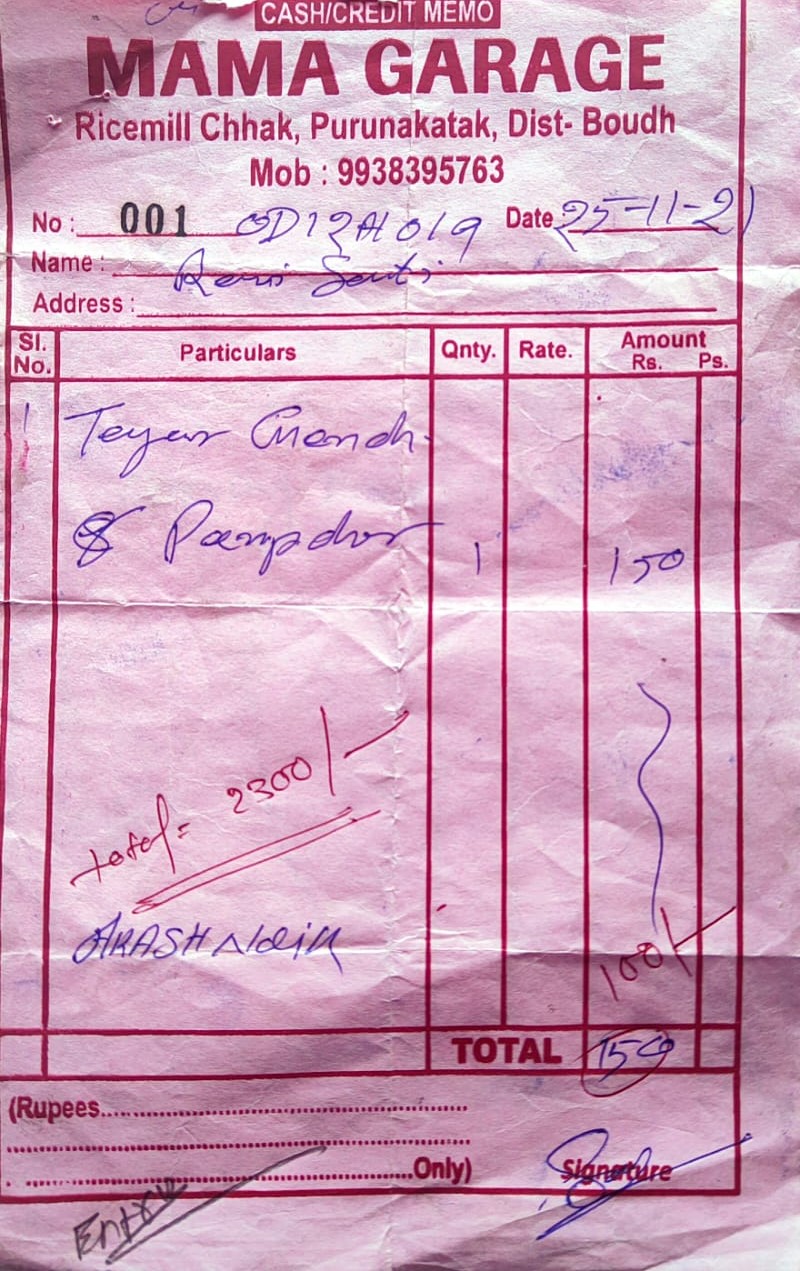 CASH/CREDIT MEMO
MAMA GARAGE
Ricemill Chhak, Purunakatak, Dist- Boudh
Mob : 9938395763
No : 001 Date : 25-11-21
Name :
Address :
Sl. No. Particulars Qnty. Rate. Amount Rs. Ps.
1 Teyar
& 1 150
total = 2300/-
AKASH NAIK
100/-
TOTAL 150
(Rupees
Only) Signature
Entry